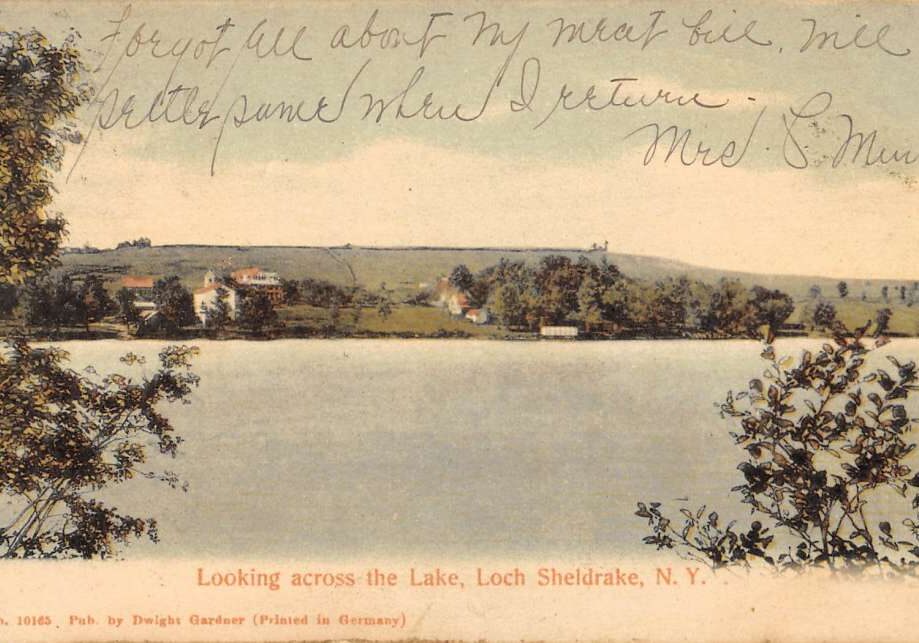 Forgot all about my meat bill. Will
settle same when I return -
Mrs. S.
Looking across the Lake, Loch Sheldrake, N. Y.
10165. Pub. by Dwight Gardner (Printed in Germany)